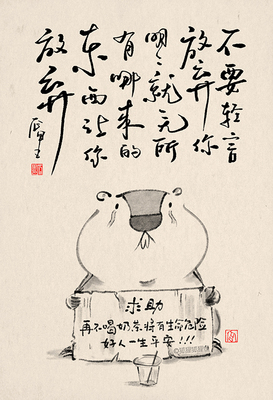 不要轻言
放弃你
明々就无所
有哪来的
东西让你
放弃
求助
再不喝奶茶将有生命危险
好人一生平安!!!